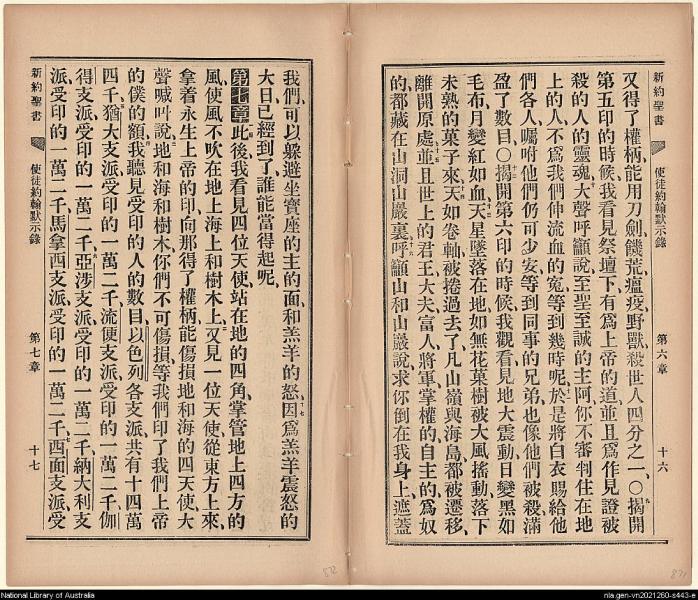 新約聖書 使徒約翰默示錄 第六章 十六
又得了權柄、能用刀劍、饑荒、瘟疫、野獸、殺世人四分之一、○九揭開
第五印的時候、我看見祭壇下、有爲上帝的道、並且爲作見證被
殺的人的靈魂、十大聲呼籲說、至聖至誠的主阿、你不審判住在地
上的人、不爲我們伸流血的寃、等到幾時呢、十一於是將白衣賜給他
們各人、囑咐他們仍可少安、等到同事的兄弟、也像他們被殺、滿
盈了數目、○十二揭開第六印的時候、我觀看見地大震動、日變黑如
毛布、月變紅如血、十三天星墜落在地、如無花菓樹被大風搖動、落下
未熟的菓子來、十四天如卷軸被捲過去了、凡山嶺與海島都被遷移、
離開原處、十五並且世上的君王、大夫、富人、將軍、掌權的、自主的、爲奴
的、都藏在山洞山巖裏、十六呼籲山和山巖說、求你倒在我身上、遮蓋
我們、可以躲避坐寶座的主的面、和羔羊的怒、十七因爲羔羊震怒的
大日、已經到了、誰能當得起呢、
第七章 此後、我看見四位天使、站在地的四角、掌管地上四方的
風、使風不吹在地上、海上、和樹木上、二又見一位天使、從東方上來、
拿着永生上帝的印、向那得了權柄能傷損地和海的四天使、大
聲喊叫說、三地和海和樹木、你們不可傷損、等我們印了我們上帝
的僕的額、四我聽見受印的人的數目、以色列各支派、共有十四萬
四千、五猶大支派受印的一萬二千、流便支派、受印的一萬二千、伽
得支派受印的一萬二千、六亞涉支派、受印的一萬二千、納大利支
派、受印的一萬二千、馬拿西支派、受印的一萬二千、七西面支派、受
新約聖書 使徒約翰默示錄 第七章 十七
872
871
National Library of Australia
nla.gen-vn2021260-s443-e